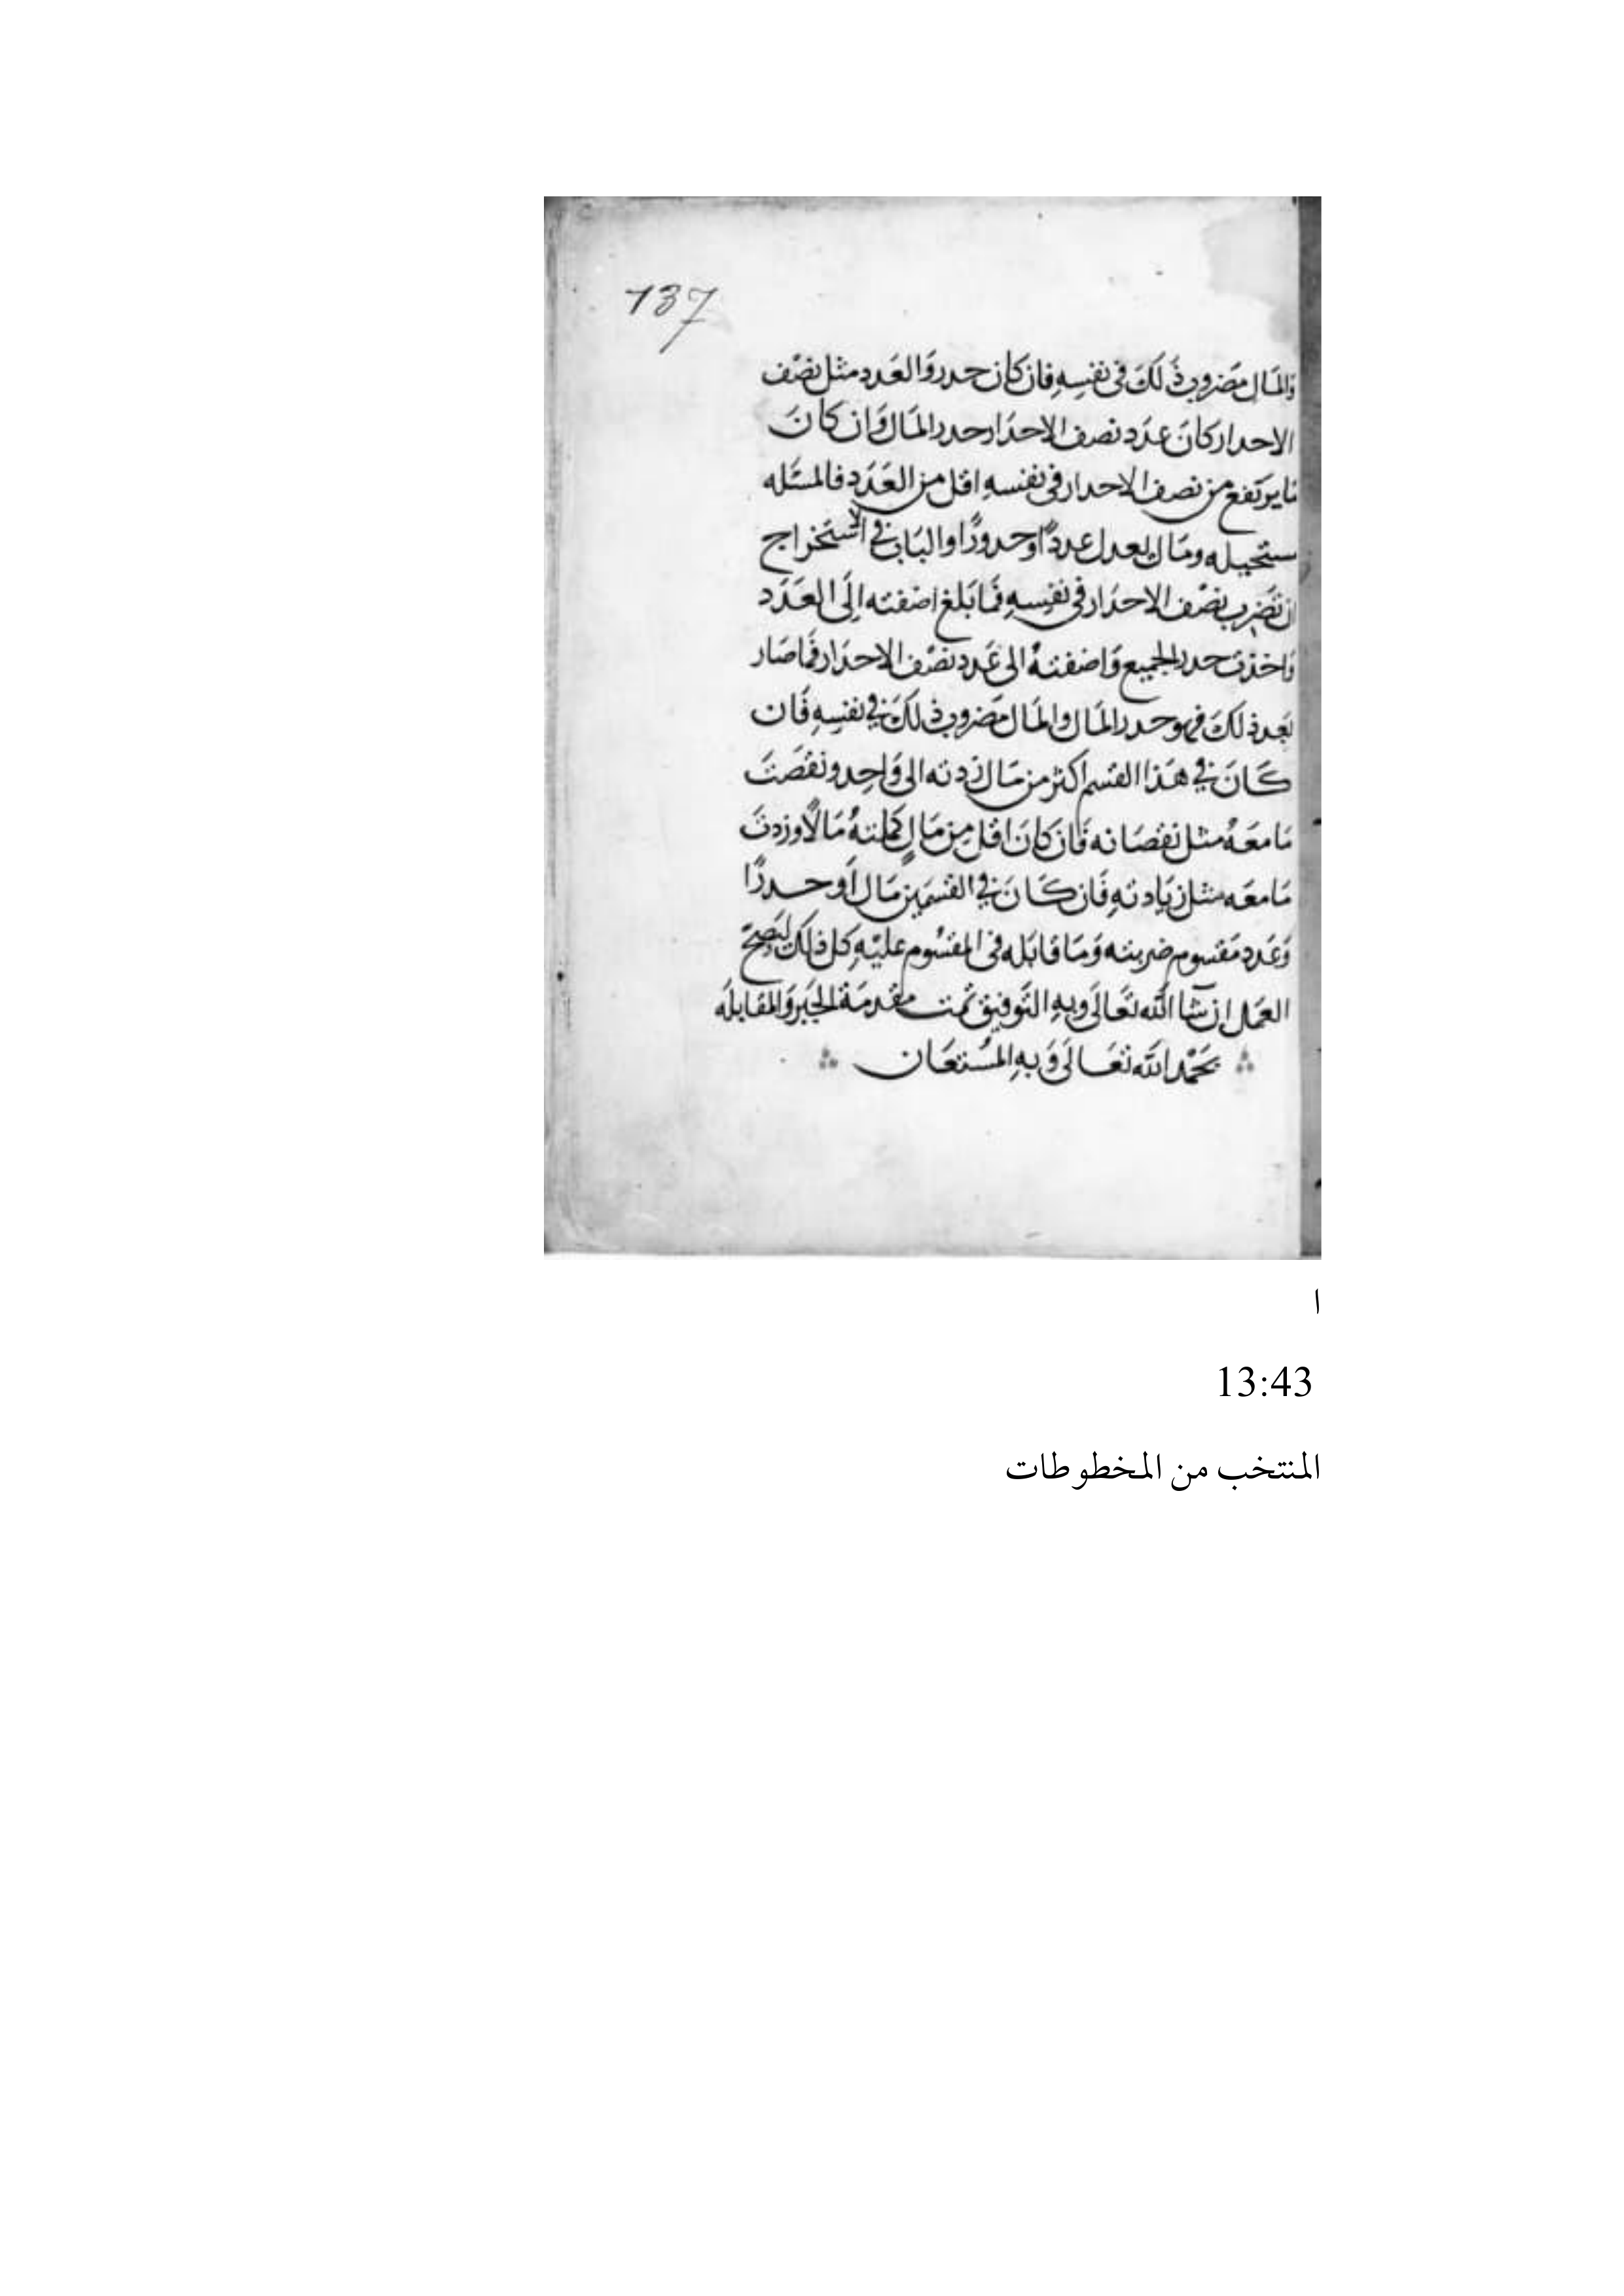 137
والمَال مَضروب ذَلكَ فى نفسِهِ فان كان حدر وَالعَدد مثل نصْف
الاحدار كانَ عدَد نصف الاحدَار حدر المَال وَان كانَ
مَا يرتفع من نصف الاحدار فى نفسهِ اقل من العَدَد فالمسَله
ستحيله ومَال يعدل عددًا وحدورًا والبَاب في الاستخراج
ان تضرب نصْف الاحدَار فى نفسِهِ فمَا بَلغ اضفته الَى العَدَد
وَاخذت حدر الجميع وَاضفتهُ الى عَدد نصْف الاحدَار فمَا صَار
بَعد ذلكَ فهو حدر المَال والمَال مَضروب ذلكَ في نفسِهِ فَان
كَانَ في هَذا القسم اكثر من مَال رددته الى وَاحِد ونقصَتَ
مَا معَهُ مثل نقصَانه فَان كَانَ اقل مِن مَالٍ كملتهُ مَالًا وزدتَ
مَا معَه مثل زيَادتهِ فَان كَانَ في القسمَين مَال اَو حدرًا
وَعَدد مَقسوم ضربته وَمَا قابَله فى المقسُوم عليْهِ كل ذلكَ ليَصِحّ
العمَل ان شآ الله تعَالَى وبهِ التَوفيق تمت مقدمَة الجَبر وَالمقابلَه
بحَمْد الله تعَالَى وَبهِ المسْتعَان
ا
13:43
المنتخب من المخطوطات